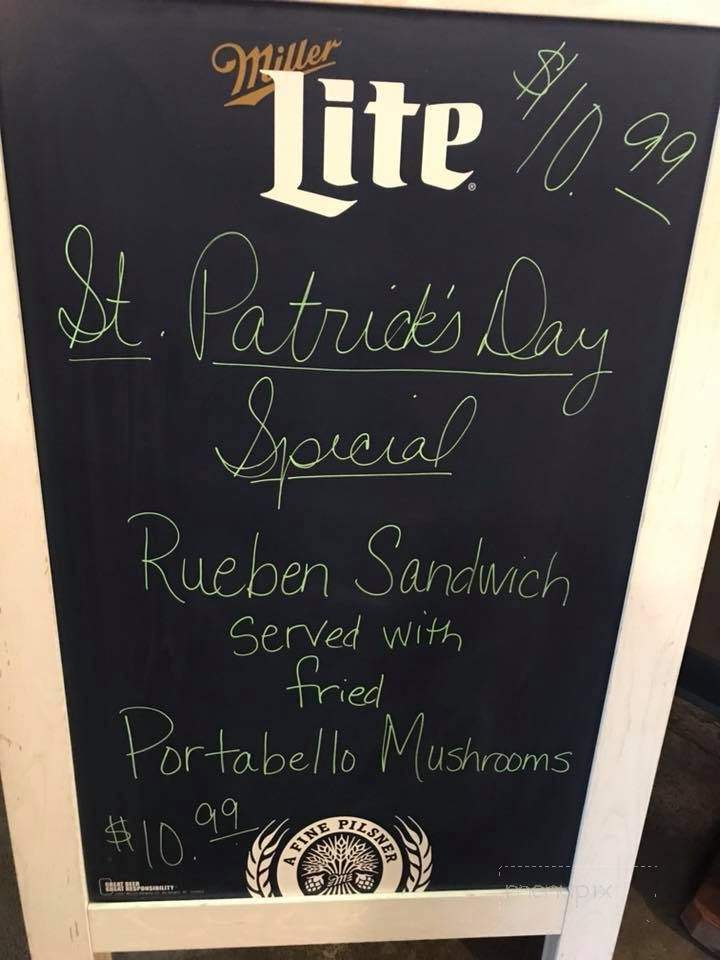 Miller
Lite
$10.99
St. Patrick's Day
Special
Rueben Sandwich
Served with
fried
Portabello Mushrooms
$10.99
A FINE PILSNER
GREAT BEER
GREAT RESPONSIBILITY
menupix